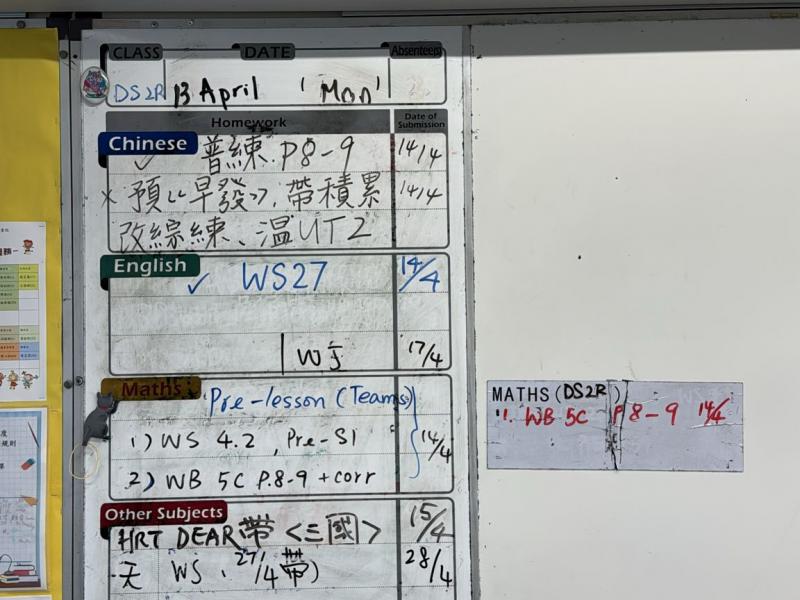 CLASS DATE Absentee(s)
DS2R 13 April (Mon)
Homework Date of Submission
Chinese ✓ 普練.P8-9 14/4
× 預《早發》,帶積累 14/4
改綜練、溫UT2
English ✓ WS27 14/4
WJ 17/4
Maths Pre-lesson (Teams)
1) WS 4.2, Pre-S1 14/4
2) WB 5C P.8-9 + corr
Other Subjects
HRT DEAR帶<三國> 15/4
WS, 27/4 帶) 28/4
MATHS (DS2R)
1. WB 5C P 8-9 14/4